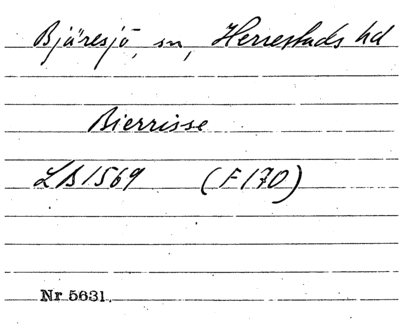 Bjäresjö, sn, Herrestads hd
Bierrisse
LB1569 (F170)
Nr 5631.